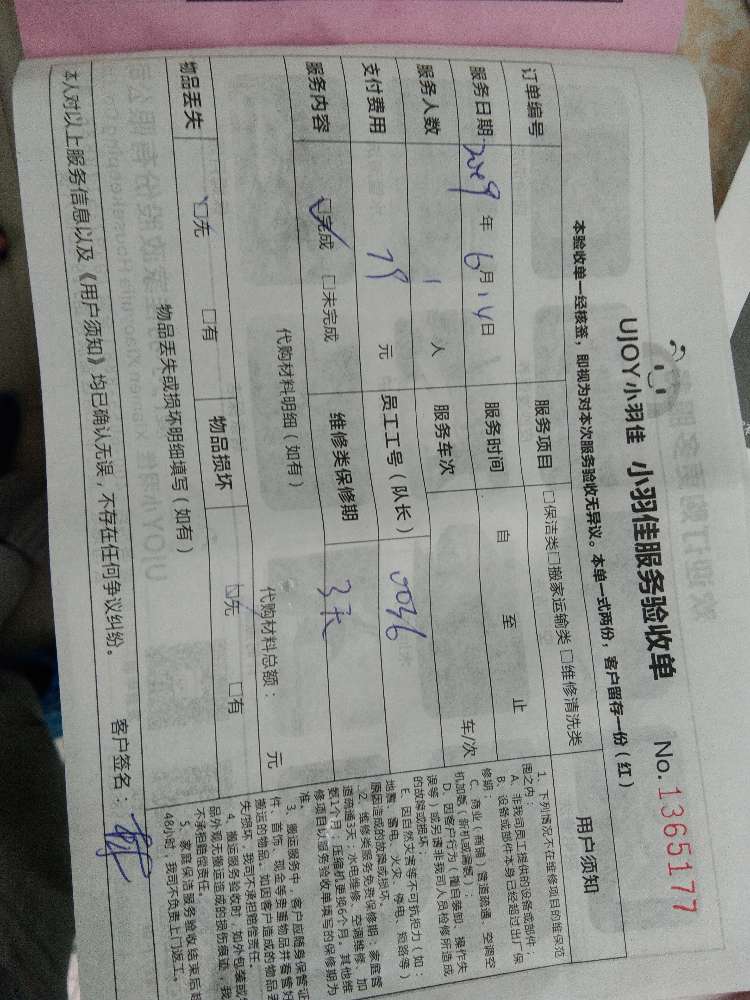 UJOY小羽佳 小羽佳服务验收单 No.1365177
本验收单一经核签，即视为对本次服务验收无异议。本单一式两份，客户留存一份（红）
订单编号 服务项目 □保洁类□搬家运输类□维修清洗类
服务日期 2019年6月14日 服务时间 自 至 止
服务人数 1人 服务车次 车/次
支付费用 79元 员工工号（队长） 0036
服务内容 ☑完成 □未完成 维修类保修期 3天
代购材料明细（如有） 代购材料总额： 元
物品丢失 ☑无 □有 物品损坏 ☑无 □有
物品丢失或损坏明细填写（如有）
本人对以上服务信息以及《用户须知》均已确认无误，不存在任何争议纠纷。
客户签名：
用户须知
1、下列情况不在维修项目的维保范
围之内：
A、非我司员工提供的设备或部件；
B、设备或部件本身已经超过出厂保
修期；
C、商业（商铺）管道疏通、空调空
机加氨（新机或漏氨）；
D、因客户行为（擅自装卸、操作失
误等）或另请非我司人员检修所造成
的故障或损坏；
E、因自然灾害等不可抗拒力（如：
地震、雷电、火灾、停电、短路等）
原因造成的故障或损坏。
2、维修类服务免费保修期：家庭管
道疏通3天，水电维修、空调维修、加
氨1个月，压缩机更换6个月。其他维
修项目以服务验收单填写的保修期为
准。
3、搬运服务中，客户应随身保管证
件、首饰、现金等贵重物品并看管好
搬运的物品，如因客户造成的物品丢
失/损坏，我司不承担赔偿责任。
4、搬运服务验收时，如外包装或
品外观无搬运造成的损伤痕迹，我
不承担赔偿责任。
5、家庭保洁服务验收结束后超
48小时，我司不负责上门返工。